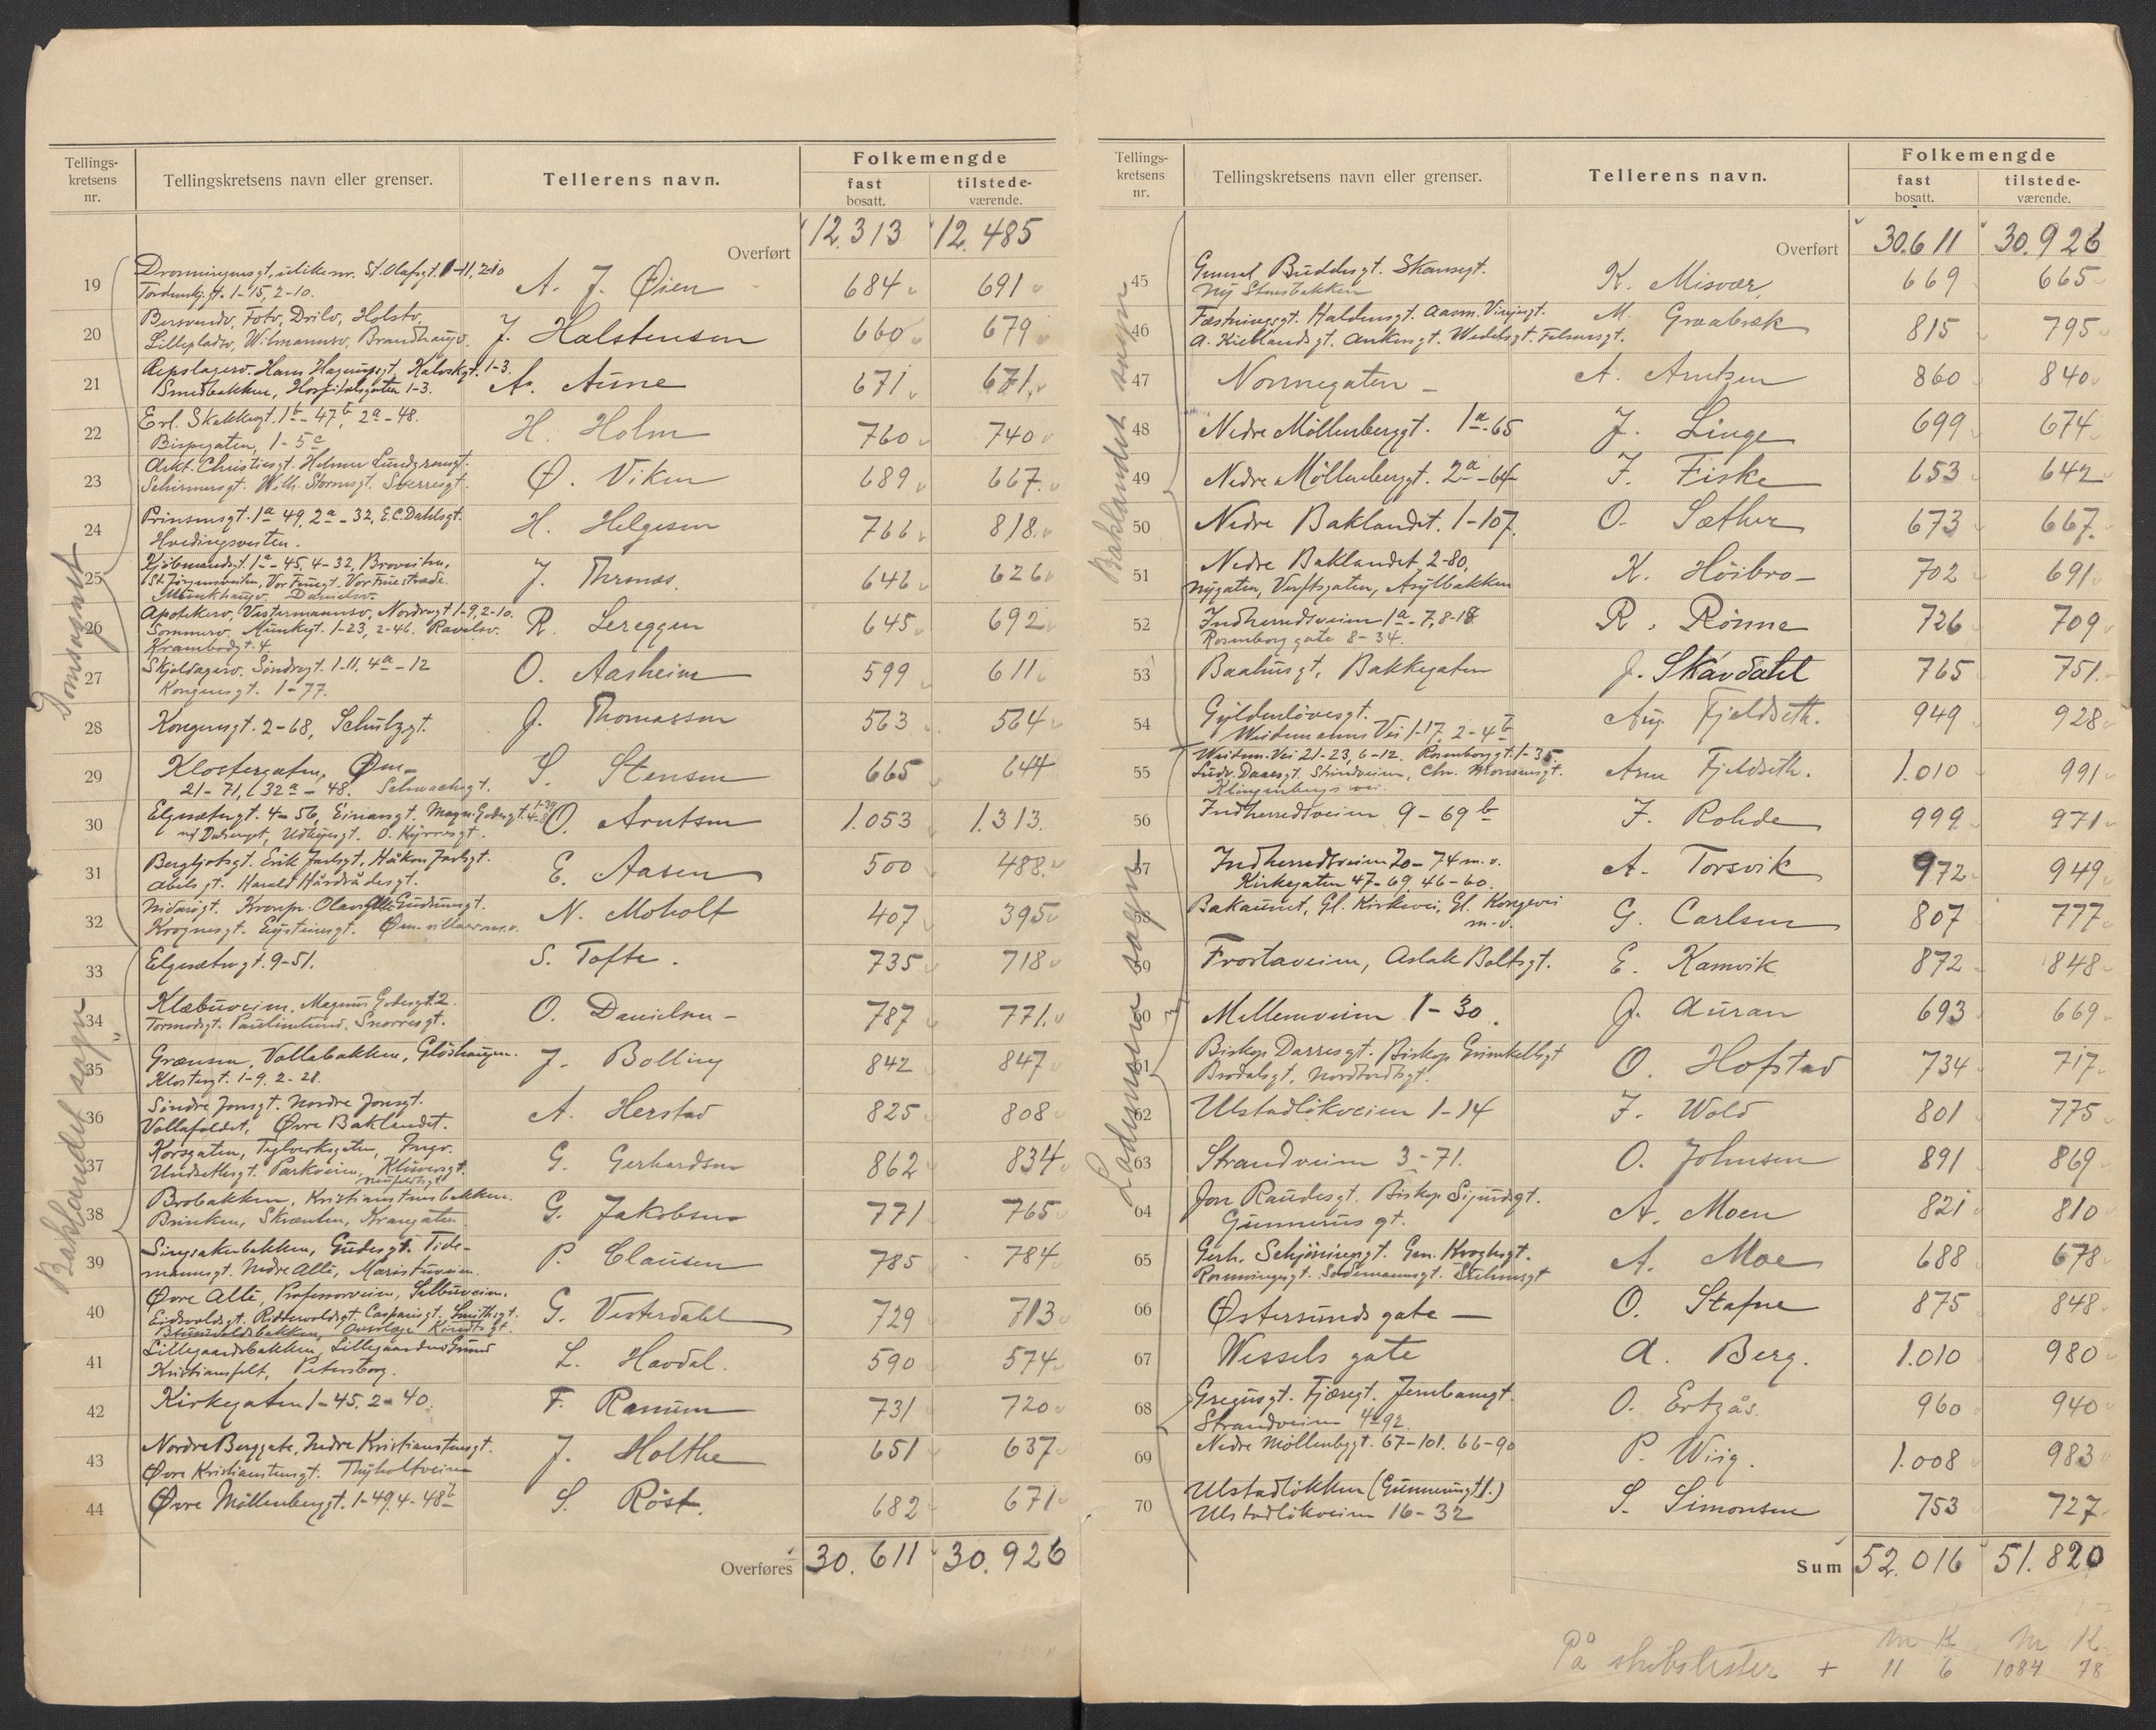 Tellings-
kretsens
nr.
Tellingskretsens navn eller grenser.
Tellerens navn.
Folkemengde
fast
bosatt.
tilstede-
værende.
Overført 12.313 12.485
Domsognet
19 Dronningensgt. ulike nr. St. Olafsgt. 1-11, 2-10
Tordenskj.gt. 1-15, 2-10. A. J. Øien 684 691
20 Bersvendv, Fotv, Drilv, Holstv,
Lillepladsv, Wilmannsv. Brandhaugv. J. Halstensen 660 679
21 Repslagerv. Hans Hagerupsgt, Kalvskgt. 1-3.
Smedbakken, Hospitalsgaten 1-3. A. Aune 671 671
22 Erl. Skakkesgt. 1b-47b, 2a-48.
Bispegaten, 1-5c H. Holm 760 740
23 Arkt. Christiesgt. Helmer Lundgrensgt.
Schirmersgt. Wilh. Stormsgt. Sverresgt. O. Viken 689 667
24 Prinsensgt. 1a-49, 2a-32, E.C. Dahlsgt.
Hvedingsveiten. H. Helgesen 766 818
25 Kjöbmandsgt. 1a-45, 4-32, Broveiten,
St. Jörgensveiten, Vor Fruegt. Vor Fruestræde.
Munkhaugv. Danielsv. J. Thronæs. 646 626
26 Apothekerv, Vestermannsv, Nordregt 1-9, 2-10.
Sommerv. Munkegt. 1-23, 2-46. Ravelsv.
Krambodgt. 4 R. Lereggen 645 692
27 Skjoldagerv. Söndregt. 1-11, 4a-12
Kongensgt. 1-77. O. Aasheim 599 611
28 Kongensgt. 2-68, Schultzgt. J. Thomassen 563 564
29 Klostergaten, Øen
21-71, 32a-48. Schwachsgt. S. Stensen 665 644
30 Elgesætergt. 4-56, Einarsgt. Magn. Godesgt. 1-39
O. Kyrresgt. O. Arntsen 1.053 1.313
31 Bergljotsgt. Erik Jarlsgt, Håkon Jarlsgt.
Abelsgt. Harald Hårdrådesgt. E. Aasen 500 488
32 Nidarögt. Kronpr. Olavs Allé Gudrunsgt.
Krognesgt. Eysteinsgt. Øen-villaer m.v. N. Moholt 407 395
Baklandet sogn
33 Elgesætergt. 9-51. S. Tofte. 735 718
34 Klæbuveien, Magnus Godesgt. 2.
Tormodsgt. Paulinelund. Snorresgt. O. Danielsen 787 771
35 Grænsen, Vollabakken, Glöshaugen.
Klostergt. 1-9. 2-28. J. Bolling 842 847
36 Söndre Jonsgt. Nordre Jonsgt.
Vollafaldet, Øvre Baklandet. A. Herstad 825 808
37 Korsgaten, Teglverksgaten, Ingv.
Undsetthsgt. Parkveien, Klüwersgt.
G. Gerhardsen 862 834
38 Brobakken, Kristianstensbakken.
Brinken, Skrænten, Krangaten G. Jakobsen 771 765
39 Singsakerbakken, Gudesgt. Tide-
mannsgt. Nedre Allé, Maristuveien. P. Clausen 785 784
40 Øvre Allé, Professorveien, Selbuveien.
Eidsvoldsgt. Rittervoldsgt. Casparisgt. Smithsgt.
Blussuvoldsbakken, Overlæge Kindtsgt. G. Vesterdahl 729 713
41 Lillegaardsbakken, Lillegaarden Grund
Kristiansfelt, Petersborg. L. Havdal. 590 574
42 Kirkegaten 1-45. 2-40. F. Ranum 731 720
43 Nordre Berggate, Nedre Kristianstensgt.
Øvre Kristianstensgt. Thyholtveien J. Holthe 651 637
44 Øvre Möllenbergt. 1-49, 4-48b S. Röst. 682 671
Overføres 30.611 30.926
Tellings-
kretsens
nr.
Tellingskretsens navn eller grenser.
Tellerens navn.
Folkemengde
fast
bosatt.
tilstede-
værende.
Overført 30.611 30.926
Baklandet sogn
45 General Buddesgt. Skansegt.
Ny Stuesbakken K. Misvær 669 665
46 Fæstningsgt. Haldensgt. Aasm. Vinjesgt.
A. Kiellandsgt. Ankersgt. Wedelsgt. Falsensgt. M. Graabræk 815 795
47 Nonnegaten – A. Arntzen 860 840
48 Nedre Möllenberggt. 1a-65 J. Linge 699 674
49 Nedre Möllenberggt. 2a-64 F. Fiske 653 642
50 Nedre Baklandet. 1-107. O. Sæther 673 667
51 Nedre Baklandet, 2-80,
Nygaten, Verftsgaten, Asylbakken K. Höibro 702 691
52 Indherredsveien 1a-7, 8-18
Rosenborg gate 8-34. R. Rönne 726 709
53 Baahusgt, Bakkegaten J. Skavdahl 765 751
54 Gyldenlövesgt.
Weidemanns Vei 1-17. 2-4b Aug. Fjeldseth. 949 928
Lademoen sogn
55 Weidem. Vei 21-23, 6-12. Rosenborggt. 1-35
Ludv. Daaesgt. Strindveien, Chr. Monsensgt.
Klingenbergs vei. Arne Fjeldseth. 1.010 991
56 Indherredsveien 9-69b F. Rohde 999 971
57 Indherredsveien 20-74 m.v.
Kirkegaten 47-69. 46-60. A. Torsvik 972 949
58 Bakaunet, Gl. Kirkevei, Gl. Kongevei
m.v. G. Carlsen 807 777
59 Frostaveien, Aslak Boltsgt. E. Kamvik 872 848
60 Mellemveien 1-30. J. Auran 693 669
61 Biskop Darresgt. Biskop Grimkellsgt
Brodalsgt, Nordtvedtsgt. O. Hofstad 734 717
62 Ulstadlökveien 1-14 F. Wold 801 775
63 Strandveien 3-71. O. Johnsen 891 869
64 Jon Raudesgt. Biskop Sigurdsgt.
Gunnerus gt. A. Moen 821 810
65 Gerh. Schjöningsgt. Gen. Kroghsgt.
Ronningsgt. Sodemannsgt. A. Moe 688 678
66 Østersunds gate – O. Stafne 875 848
67 Wessels gate A. Berg. 1.010 980
68 Gregusgt. Fjæregt. Jernbanegt.
Strandveien 4-92. O. Ertzås. 960 940
69 Nedre Möllenbggt. 67-101. 66-90 P. Wiig. 1.008 983
70 Ulstadlökken (Gunnerusgt 1.)
Ulstadlökveien 16-32 S. Simonsen 753 727
Sum 52.016 51.820
M K M K
På skibslister + 11 6 1084 78